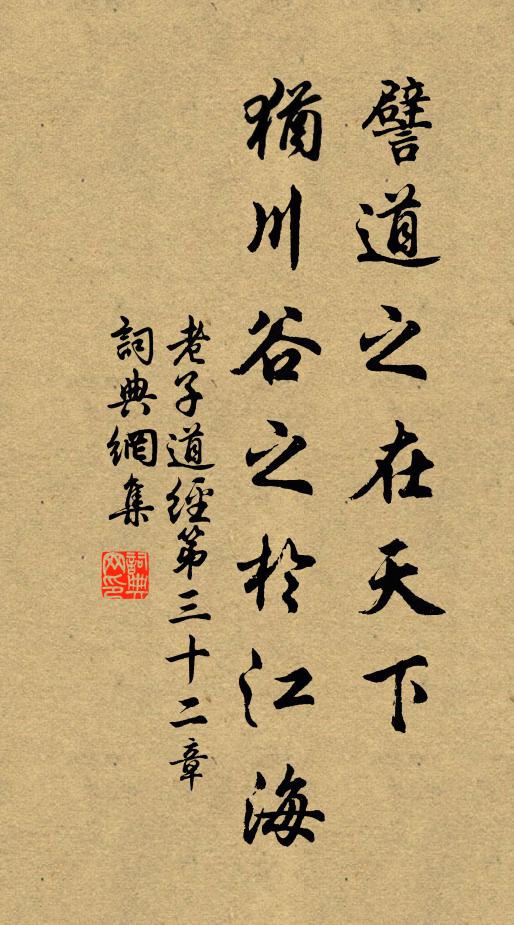 譬道之在天下
猶川谷之於江海
老子道經第三十二章
詞典網集
詞典
网印